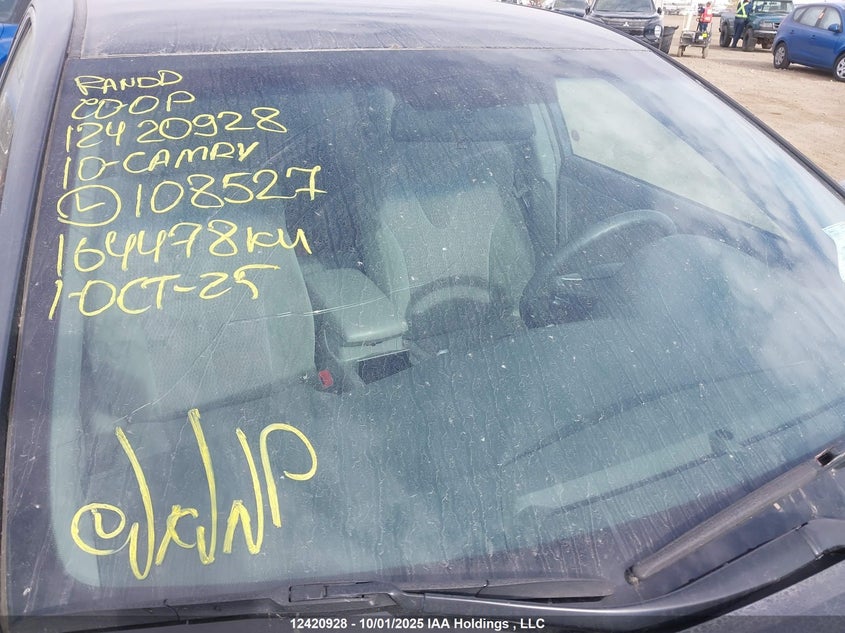 RANDD
CO-OP
12420928
10-CAMRY
L 108527
164478KM
1-OCT-25
12420928 - 10/01/2025 IAA Holdings , LLC